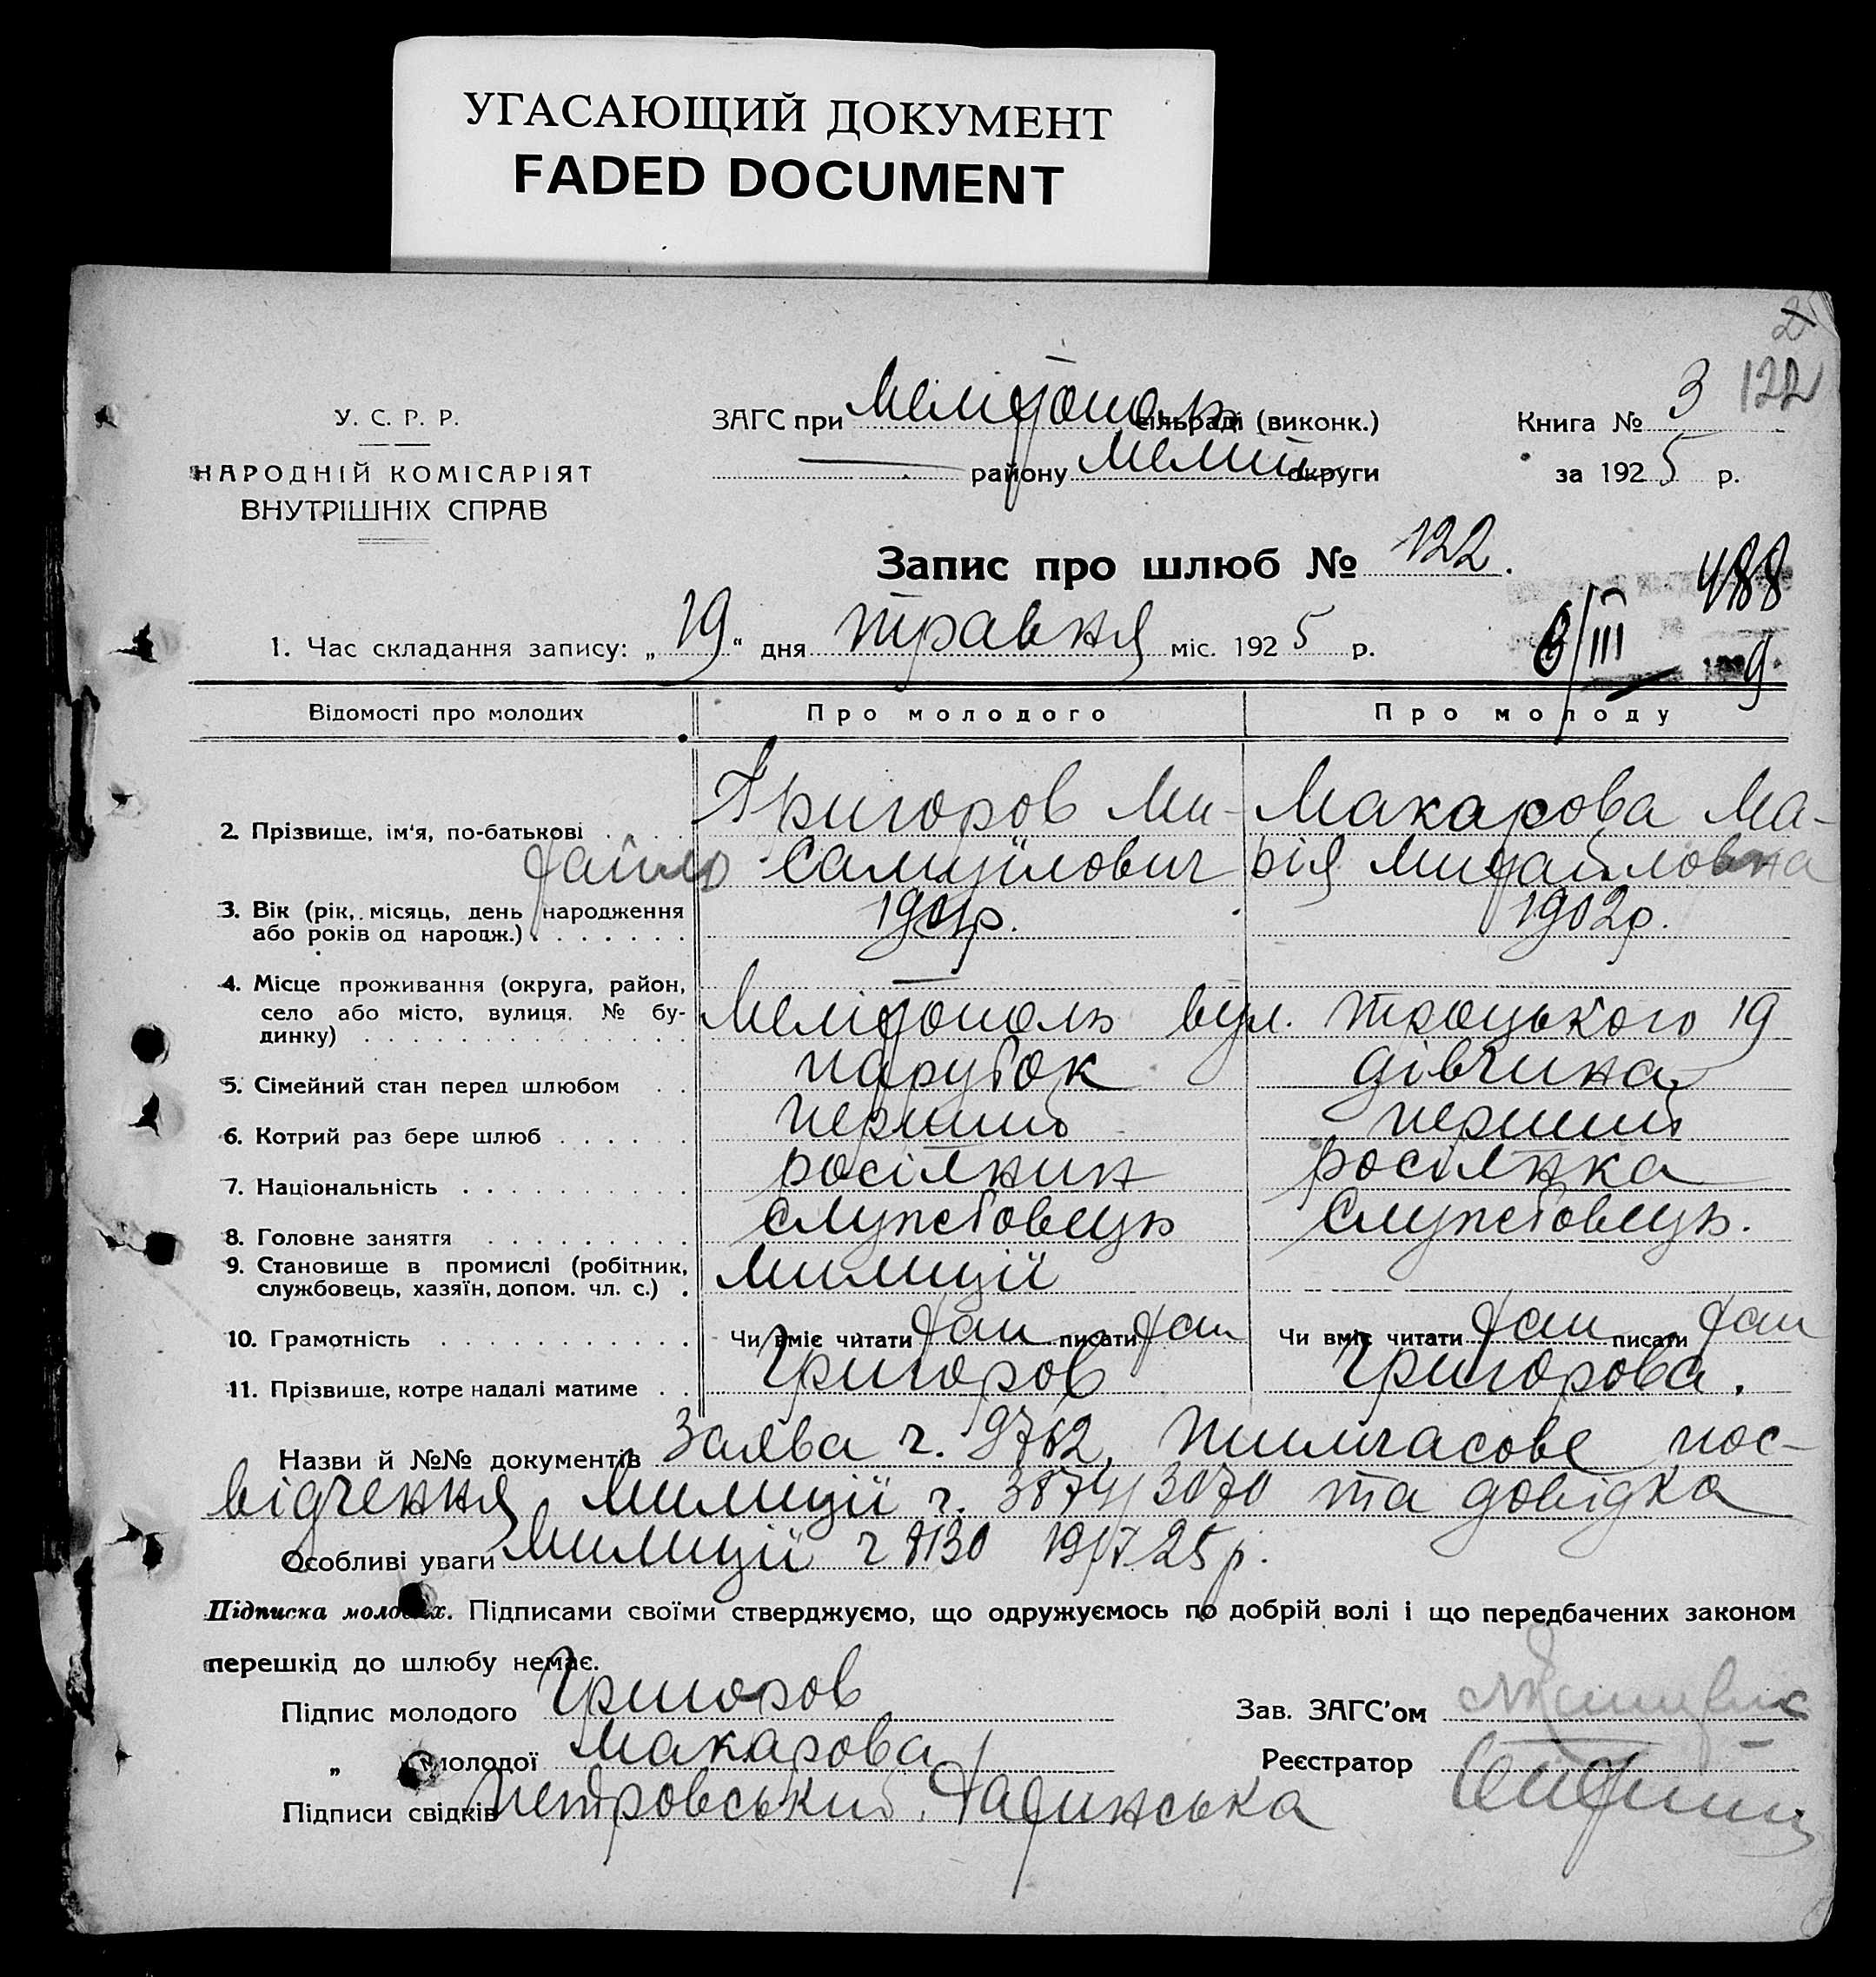 УГАСАЮЩИЙ ДОКУМЕНТ
FADED DOCUMENT
122
У. С. Р. Р.
НАРОДНІЙ КОМІСАРІЯТ
ВНУТРІШНІХ СПРАВ
ЗАГС при Мелітополь сільраді (виконк.)
району Меліт округи
Книга № 3
за 1925 р.
Запис про шлюб № 122.
488
6/III 9
1. Час складання запису: „19“ дня травня міс. 1925 р.
Відомості про молодих Про молодого Про молоду
2. Прізвище, ім'я, по-батькові . . . Григоров Ми- Макарова Ма-
хайло Самуїлович рія Михайловна
3. Вік (рік, місяць, день народження
або років од народж.) . . . . . . . 1901р. 1902р.
4. Місце проживання (округа, район,
село або місто, вулиця, № бу-
динку) . . . . . . . . . . . . . . . Мелітополь вул. Троцького 19
5. Сімейний стан перед шлюбом . . парубок дівчина
6. Котрий раз бере шлюб . . . . . . перший перший
7. Національність . . . . . . . . . . росіянин росіянка
8. Головне заняття . . . . . . . . . службовець службовець.
9. Становище в промислі (робітник,
службовець, хазяїн, допом. чл. с.) . милиції
10. Грамотність . . . . . . . . . . . Чи вміє читати так писати так Чи вміє читати так писати так
11. Прізвище, котре надалі матиме . . Григоров Григорова.
Назви й №№ документів Заява ч. 9762, тимчасове пос-
відчення милиції ч. 3874/3070 та довідка
Особливі уваги милиції ч 8130 19/V 25 р.
Підписка молодих. Підписами своїми стверджуємо, що одружуємось по добрій волі і що передбачених законом
перешкід до шлюбу немає.
Підпис молодого Григоров
Зав. ЗАГС'ом
„ молодої Макарова
Реєстратор
Підписи свідків Петровський.